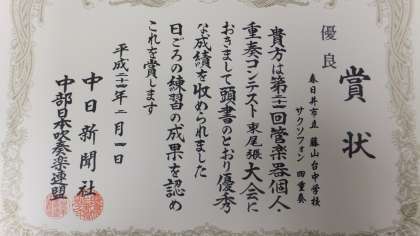 賞状
優良
春日井市立 藤山台中学校
サクソフォン 四重奏
貴方は第二十一回管楽器個人・
重奏コンテスト東尾張大会に
おきまして頭書のとおり優秀
な成績を収められました
日ごろの練習の成果を認め
これを賞します
平成二十四年二月四日
中日新聞社
中部日本吹奏楽連盟